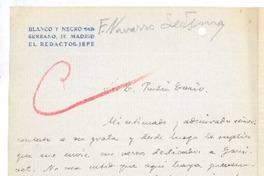 BLANCO Y NEGRO
SERRANO, 55. MADRID
EL REDACTOR-JEFE
F. Navarro Ledesma
Sr. D. Rubén Darío.
Mi estimado y admirado señor:
contesto a su grata y desde luego le suplico
que me envíe sus versos dedicados a Gani-
vet. No crea usted que aquí haya